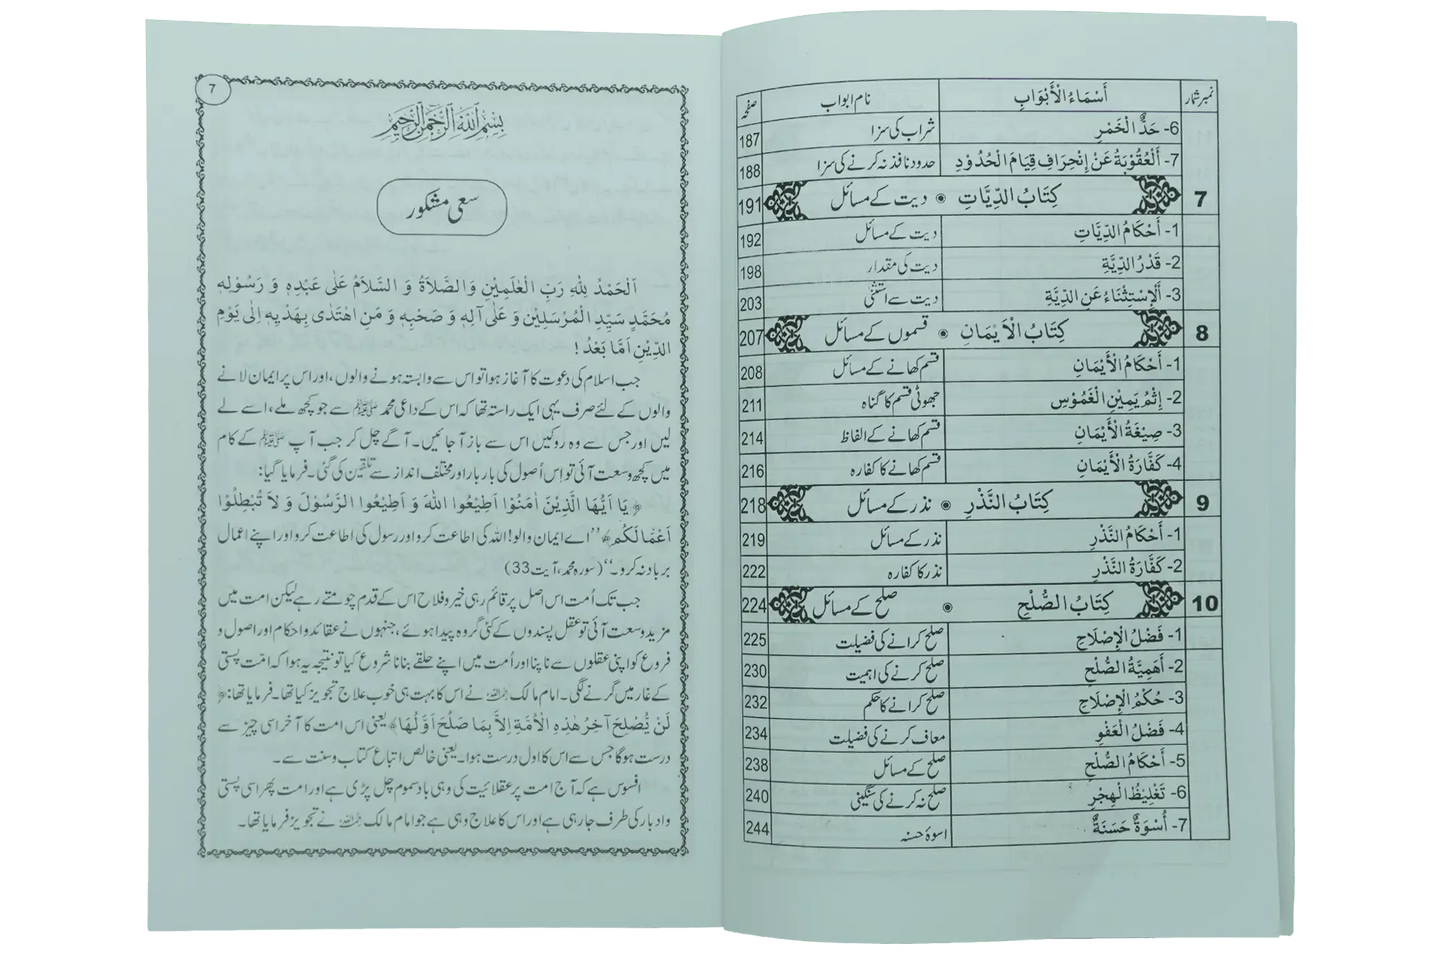 نمبر شمار أَسْمَاءُ الْأَبْوَابِ نام ابواب صفحہ
6- حَدُّ الْخَمْرِ شراب کی سزا 187
7- اَلْعُقُوْبَةُ عَنْ إِنْحِرَافِ قِيَامِ الْحُدُوْدِ حدود نافذ نہ کرنے کی سزا 188
7 كِتَابُ الدِّيَّاتِ ● دیت کے مسائل 191
1- أَحْكَامُ الدِّيَّاتِ دیت کے مسائل 192
2- قَدْرُ الدِّيَّةِ دیت کی مقدار 198
3- اَلْإِسْتِثْنَاءُ عَنِ الدِّيَّةِ دیت سے استثنٰی 203
8 كِتَابُ الْاَيْمَانِ ● قسموں کے مسائل 207
1- أَحْكَامُ الْأَيْمَانِ قسم کھانے کے مسائل 208
2- إِثْمُ يَمِيْنِ الْغَمُوْسِ جھوٹی قسم کا گناہ 211
3- صِيْغَةُ الْأَيْمَانِ قسم کھانے کے الفاظ 214
4- كَفَّارَةُ الْأَيْمَانِ قسم کھانے کا کفارہ 216
9 كِتَابُ النَّذْرِ ● نذر کے مسائل 218
1- أَحْكَامُ النَّذْرِ نذر کے مسائل 219
2- كَفَّارَةُ النَّذْرِ نذر کا کفارہ 222
10 كِتَابُ الصُّلْحِ ● صلح کے مسائل 224
1- فَضْلُ الْإِصْلَاحِ صلح کرانے کی فضیلت 225
2- أَهَمِيَّةُ الصُّلْحِ صلح کرنے کی اہمیت 230
3- حُكْمُ الْإِصْلَاحِ صلح کرانے کا حکم 232
4- فَضْلُ الْعَفْوِ معاف کرنے کی فضیلت 234
5- أَحْكَامُ الصُّلْحِ صلح کے مسائل 238
6- تَغْلِيْظُ الْهِجْرِ صلح نہ کرنے کی سنگینی 240
7- أُسْوَةٌ حَسَنَةٌ اسوۂ حسنہ 244
7
بِسْمِ اللهِ الرَّحْمٰنِ الرَّحِيْمِ
سعی مشکور
اَلْحَمْدُ لِلّٰهِ رَبِّ الْعٰلَمِيْنَ وَالصَّلَاةُ وَ السَّلَامُ عَلٰى عَبْدِهٖ وَ رَسُوْلِهٖ
مُحَمَّدٍ سَيِّدِ الْمُرْسَلِيْنَ وَ عَلٰى آلِهٖ وَ صَحْبِهٖ وَ مَنِ اهْتَدٰى بِهَدْيِهٖ اِلٰى يَوْمِ
الدِّيْنِ اَمَّا بَعْدُ !
جب اسلام کی دعوت کا آغاز ہوا تو اس سے وابستہ ہونے والوں، اور اس پر ایمان لانے
والوں کے لئے صرف یہی ایک راستہ تھا کہ اس کے داعی محمد ﷺ سے جو کچھ ملے، اسے لے
لیں اور جس سے وہ روکیں اس سے باز آ جائیں۔ آگے چل کر جب آپ ﷺ کے کام
میں کچھ وسعت آئی تو اِس اُصول کی بار بار اور مختلف انداز سے تلقین کی گئی۔ فرمایا گیا:
﴿يَا اَيُّهَا الَّذِيْنَ اٰمَنُوْا اَطِيْعُوا اللهَ وَ اَطِيْعُوا الرَّسُوْلَ وَ لَا تُبْطِلُوْا
اَعْمَالَكُمْ﴾ ’’اے ایمان والو! اللہ کی اطاعت کرو اور رسول کی اطاعت کرو اور اپنے اعمال
برباد نہ کرو۔‘‘ (سورہ محمد، آیت 33)
جب تک اُمت اس اصل پر قائم رہی خیر و فلاح اس کے قدم چومتے رہے لیکن امت میں
مزید وسعت آئی تو عقل پسندوں کے کئی گروہ پیدا ہوئے، جنہوں نے عقائد و احکام اور اصول و
فروع کو اپنی عقلوں سے ناپنا اور اُمت میں اپنے حلقے بنانا شروع کیا تو نتیجہ یہ ہوا کہ امّت پستی
کے غار میں گرنے لگی۔ امام مالک رحمہ اللہ نے اس کا بہت ہی خوب علاج تجویز کیا تھا۔ فرمایا تھا: ﴿
لَنْ يُّصْلِحَ آخِرَ هٰذِهِ الْاُمَّةِ اِلاَّ بِمَا صَلَحَ اَوَّلُهَا﴾ یعنی اس امت کا آخر اسی چیز سے
درست ہوگا جس سے اس کا اول درست ہوا۔ یعنی خالص اتباعِ کتاب و سنت سے۔
افسوس ہے کہ آج امت پر عقلانیت کی وہی بادِ سموم چل پڑی ہے اور امت پھر اسی پستی
و ادبار کی طرف جا رہی ہے اور اس کا علاج وہی ہے جو امام مالک رحمہ اللہ نے تجویز فرمایا تھا۔